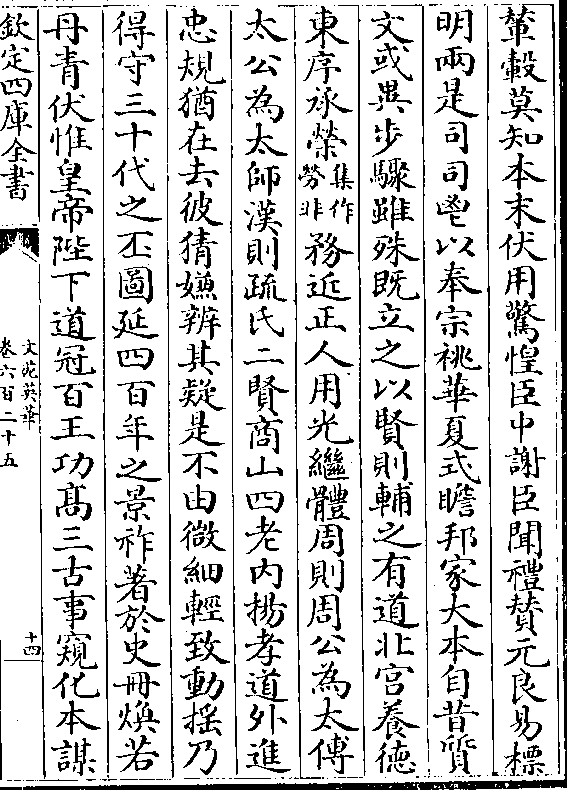 輦轂莫知本末伏用驚惶臣中謝臣聞禮賛元良易標
明兩是司司鬯以奉宗祧華夏式瞻邦家大本自昔質
文或異步驟雖殊既立之以賢則輔之有道北宮養德
東序承榮集作勞非務近正人用光繼體周則周公為太傅
太公為太師漢則疏氏二賢商山四老内揚孝道外進
忠規猶在去彼猜嫌辨其疑是不由微細輕致動揺乃
得守三十代之丕圖延四百年之景祚著於史冊煥若
丹青伏惟皇帝陛下道冠百王功髙三古事窺化本謀
欽定四庫全書
文苑英華
卷六百二十五
十四